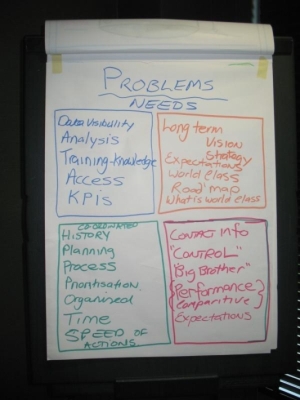 PROBLEMS
NEEDS
Data visibility
Analysis
Training-knowledge
Access
KPIs
Long term
Vision
Strategy
Expectations
World Class
Road map
What is world class
CO-ORDINATED
HISTORY
Planning
Process
Prioritisation
Organised
Time
SPEED OF
ACTIONS
CONTACT info
"CONTROL"
"Big Brother"
{Performance}
{Comparitive}
Expectations